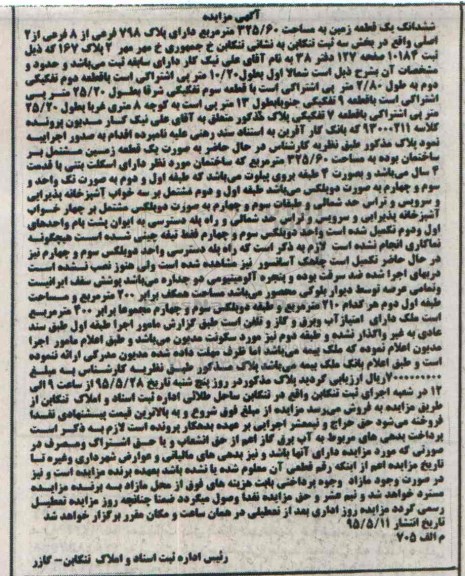 آگهی مزایده
ششدانگ یک قطعه زمین به مساحت ۳۲۵/۶۰ مترمربع دارای پلاک ۷۹۸ فرعی از ۸ فرعی از ۲
اصلی واقع در بخش سه ثبت تنکابن به نشانی تنکابن خ جمهوری خ مهر مهر ۲ پلاک ۱۶۷ که ذیل
ثبت ۱۰۱۸۴ صفحه ۱۲۷ دفتر ۳۸ به نام آقای علی نیک کار دارای سابقه ثبت می‌باشد و حدود و
مشخصات آن بشرح ذیل است شمالا اول بطول ۱۰/۲۰ متر پی اشتراکی است باقطعه دوم تفکیکی
دوم به طول ۲/۸۰ متر پی اشتراکی است با قطعه سوم تفکیکی شرقا بطول ۲۵/۲۰ متر پی
اشتراکی است باقطعه ۹ تفکیکی جنوبابطول ۱۳ متر پی است به کوچه ۸ متری غربا بطول ۲۵/۲۰
متر پی اشتراکی باقطعه ۷ تفکیکی پلاک مذکور متعلق به آقای علی نیک کار مدیون پرونده
کلاسه ۹۳۰۰۰۲۱۱ که بانک کار آفرین به استناد سند رهنی علیه نامبرده اقدام به صدور اجراییه
نمود پلاک مذکور طبق نظریه کارشناس در حال حاضر به صورت یک قطعه زمین مشتمل بر
ساختمان بوده به مساحت ۳۲۵/۶۰ مترمربع که ساختمان مورد نظر دارای اسکلت بتنی با قدمت
۴ سال می‌باشد و بصورت ۴ طبقه بروی پیلوت می‌باشد که طبقه اول و دوم به صورت تک واحد و
سوم و چهارم به صورت دوبلکس می‌باشد طبقه اول و دوم مشتمل بر سه خواب آشپزخانه پذیرایی
و سرویس و تراس حد شمالی و طبقات سوم و چهارم به صورت دوبلکس مشتمل بر چهار خواب
آشپزخانه پذیرایی و سرویس و تراس حد شمالی و راه پله دسترسی به ایوان پشت بام واحدهای
اول ودوم تکمیل شده است واحد دوبلکس سوم و چهارم فقط تیغه چینی شده است هیچگونه
نماکاری انجام نشده است لازم به ذکر است که راه پله دسترسی واحد دوبلکس سوم و چهارم نیز
در حال حاضر تکمیل است چاهک آسانسور نیز مشاهده شده است ولی هنوز نصب نشده است
دربهای اجرا شده ضد سرقت بوده و پنجره آلومینیومی دو جداره می‌باشد پوشش سقف ایرانیت
وتمامی عرصه توسط دیوار بلوکی محصور می‌باشد مساحت همکف برابر ۲۰۰ مترمربع و مساحت
طبقه اول دوم هر کدام ۲۱۰ مترمربع و طبقه دوبلکس سوم و چهارم مجموعا برابر ۴۰۰ مترمربع
است ملک دارای امتیاز آب وبرق و گاز و تلفن است طبق گزارش مامور اجرا طبقه اول طبق سند
عادی به غیر واگذار نشده و طبقه دوم نیز مورد سکونت مدیون می‌باشد و طبق اعلام مامور اجرا
مدیون اعلام نموده که ملک بیمه می‌باشد اما ظرف مهلت داده شده مدیون مدرکی ارائه ننموده
است و طبق اعلام بانک ملک بیمه می‌باشد پلاک مذکور طبق نظریه کارشناس به مبلغ
ریال ارزیابی گردید پلاک مذکوردر روز پنج شنبه تاریخ ۹۵/۵/۲۸ از ساعت ۹ الی
۱۲ در شعبه اجرای ثبت تنکابن واقع در تنکابن ساحل طلائی اداره ثبت اسناد و املاک تنکابن از
طریق مزایده به فروش می‌رسد مزایده از مبلغ فوق شروع و به بالاترین قیمت پیشنهادی نقدا
فروخته می‌شود حق حراج و نیمعشر اجرایی بر عهده بدهکار پرونده است لازم به ذکر است
پرداخت بدهی های مربوط به آب برق گاز اعم از حق انشعاب و یا حق اشتراک ومصرف در
صورتی که مورد مزایده دارای آنها باشد و نیز بدهی های مالیاتی و عوارض شهرداری وغیره تا
تاریخ مزایده اعم از اینکه رقم قطعی آن معلوم شده یا نشده باشد بعهده برنده مزایده است و نیز
در صورت وجود مازاد وجوه پرداختی بابت هزینه های فوق از محل مازاد به برنده مزایده
مسترد خواهد شد و نیم عشر و حق مزایده نقدا وصول میگردد ضمنا چنانچه روز مزایده تعطیل
رسمی گردد مزایده روز اداری بعد از تعطیلی در همان ساعت و مکان مقرر برگزار خواهد شد
تاریخ انتشار ۹۵/۵/۱۱
م الف ۷۰۵
رئیس اداره ثبت اسناد و املاک تنکابن- گازر